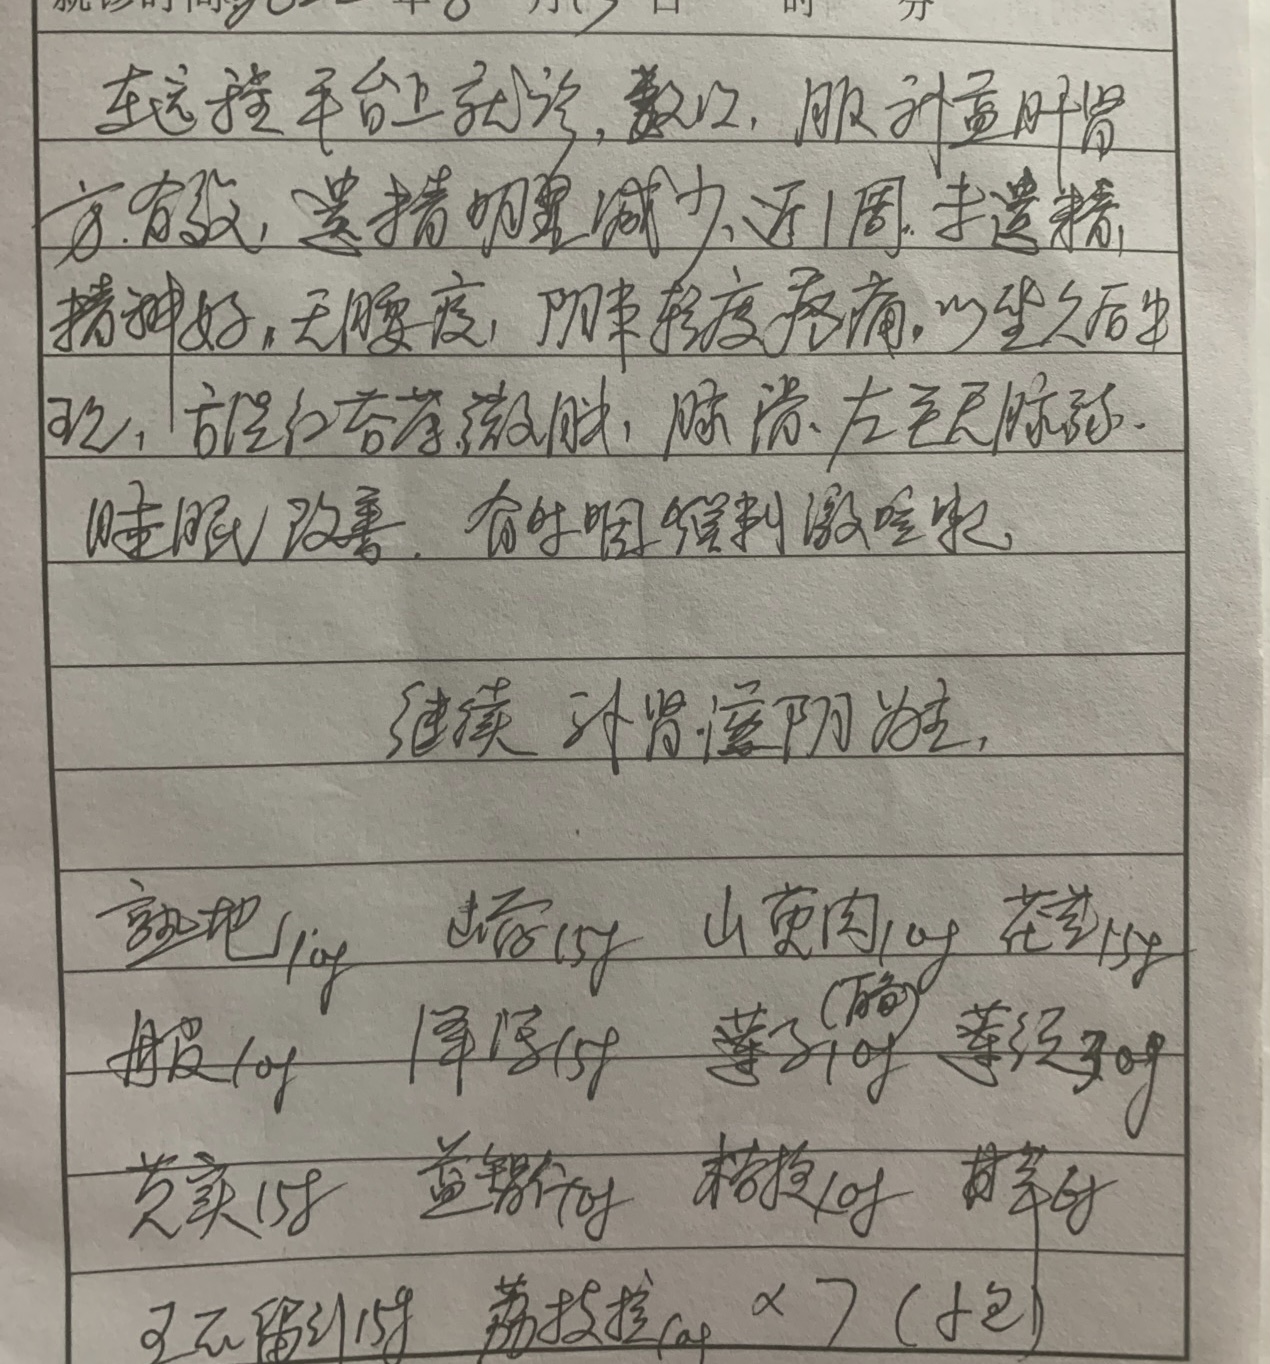 就诊时间2022年8月15日 时 分
在远程平台上就诊,数次,服补益肝肾
方.有效,遗精明显减少、近1周.未遗精,
精神好。无腰痠,阴茎轻度疼痛。以坐久后出
现,舌淡红苔薄微腻,脉滑、左
睡眠改善.有时咽喉刺激咳嗽,
继续补肾滋阴为主,
熟地10g 山药15g 山萸肉10g 茯苓15g
丹皮10g 泽泻15g 莲子10g 莲须30g
芡实15g 益智仁10g 桔梗10g 甘草6g
王不留行15g 荔枝核10g ×7